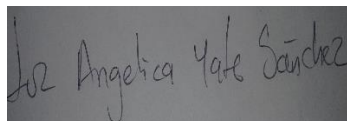 Luz Angelica Yate Sánchez